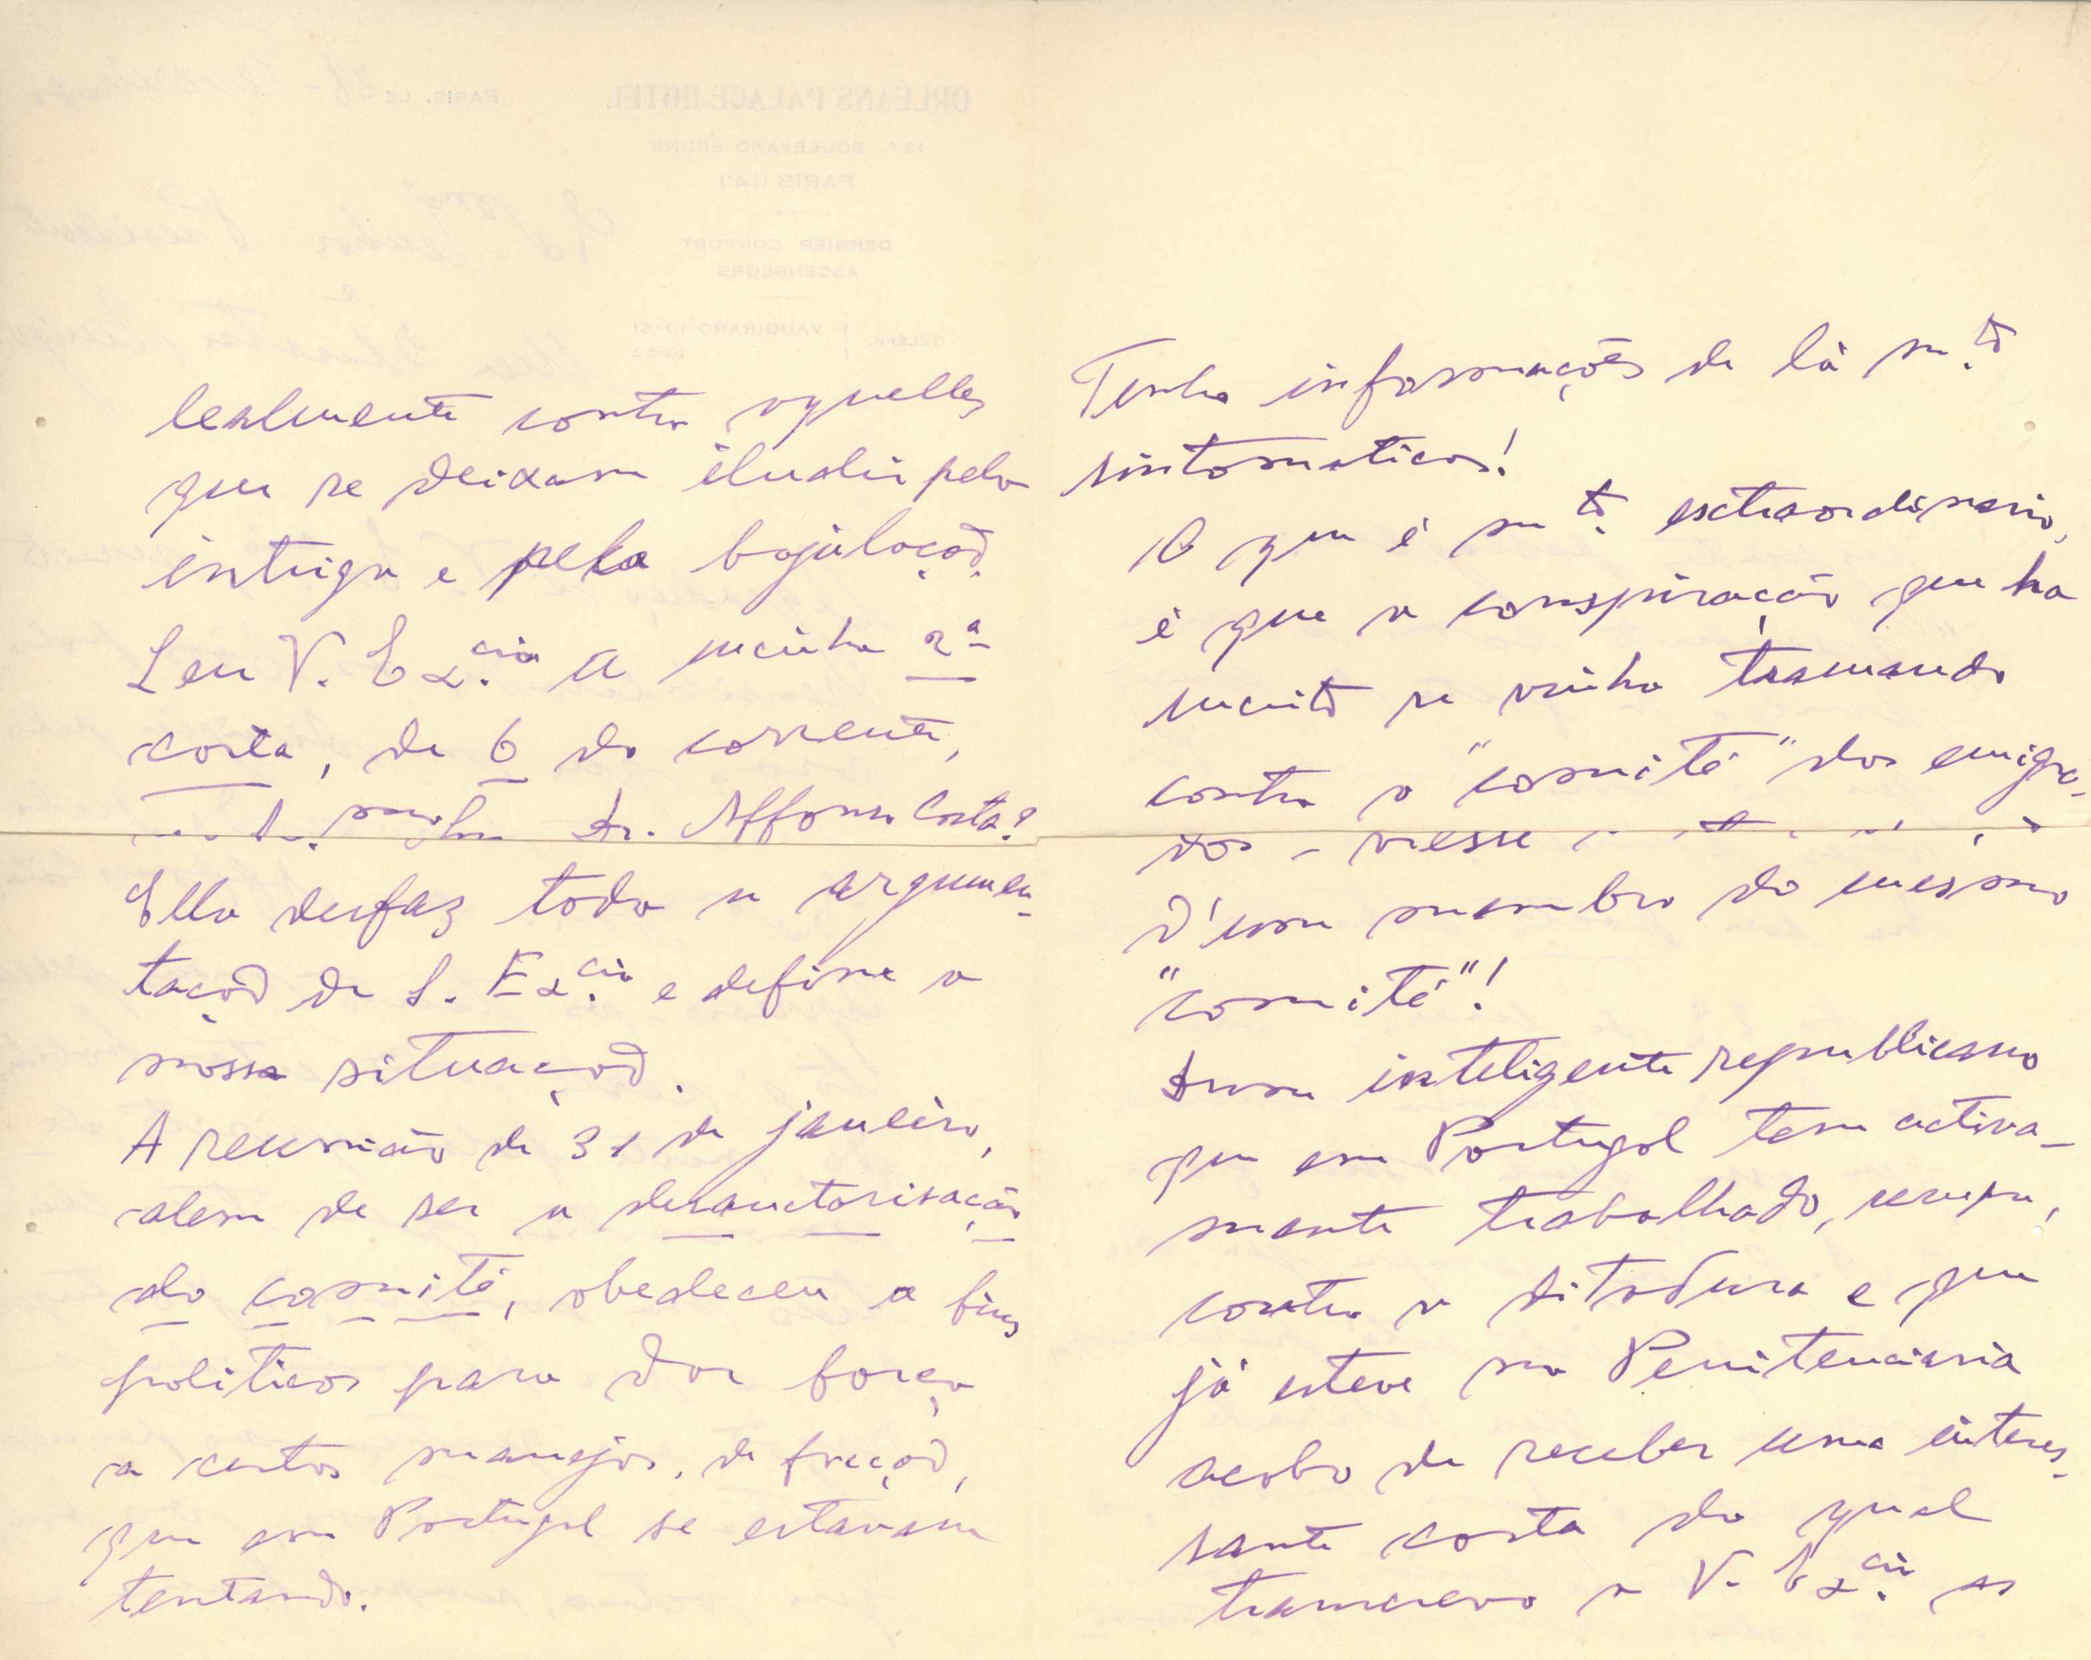 lealmente contra aquelles
que se deixam iludir pela
intriga e pela bajulação.
Leu V. Ex.cia a minha 2ª
carta, de 6 do corrente,
Dr. Affonso Costa?
Ella desfaz toda a argumen-
tação de S. Ex.cia e define a
nossa situação.
A reunião de 31 de janeiro,
alem de ser a desauctorisação
do comité, obedeceu a fins
politicos para dar força
a certos manejos, de facção,
que em Portugal se estavam
tentando.
Tenho informações de lá m.to
sintomaticas!
O que é m.to extraordinario,
é que a conspiração que ha
muito se vinha tramando
contra o "comité" dos emigra-
dos - viesse
d'um membro do mesmo
"comité"!
Dum inteligente republicano
que em Portugal tem activa-
mente trabalhado, sempre,
contra a ditadura e que
já esteve na Penitenciaria
acabo de receber uma interes-
sante carta da qual
transcrevo a V. Ex.cia as
ORLÉANS PALACE HOTEL
PARIS, LE
BOULEVARD BRUNE
PARIS (14)
DERNIER CONFORT
ASCENSEURS
VAUGIRARD